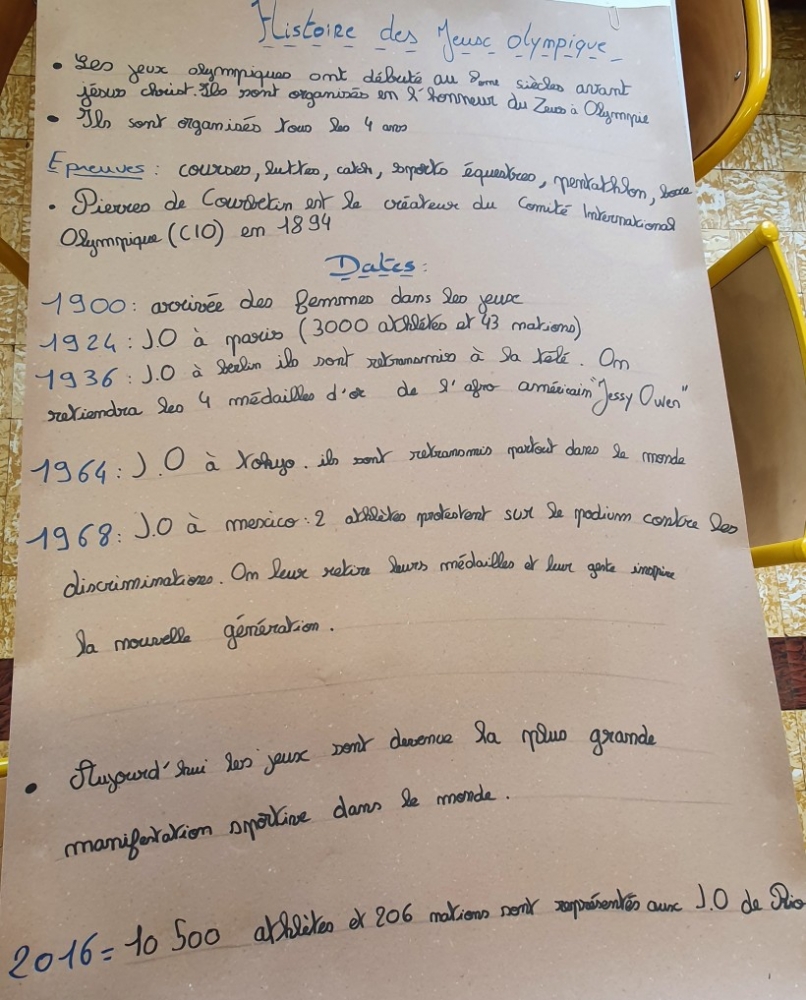 Histoire des Jeux olympique
• Les jeux olympiques ont débuté au 8eme siècles avant
jésus christ. Ils sont organisés en l'honneur du Zeus à Olympie
• Ils sont organisés tous les 4 ans
Epreuves : courses, luttes, catch, sports équestres, pentathlon, boxe
• Pierres de Courbetin est le créateur du Comité International
Olympique (CIO) en 1894
Dates :
1900 : arrivée des femmes dans les jeux
1924 : J.O à paris (3000 athlètes et 43 nations)
1936 : J.O à berlin ils sont retransmiso à la télé. On
retiendra les 4 médailles d'or de l'afro américain "Jessy Owen"
1964 : J.O à tokyo. ils sont retransmis partout dans le monde
1968 : J.O à mexico : 2 athlètes protestent sur le podium contre les
discriminations. On leur retire leurs médailles et leur geste inspire
la nouvelle génération.
• Aujourd'hui les jeux sont devenue la plus grande
manifestation sportive dans le monde.
2016 = 10 500 athlètes et 206 nations sont représentés aux J.O de Rio